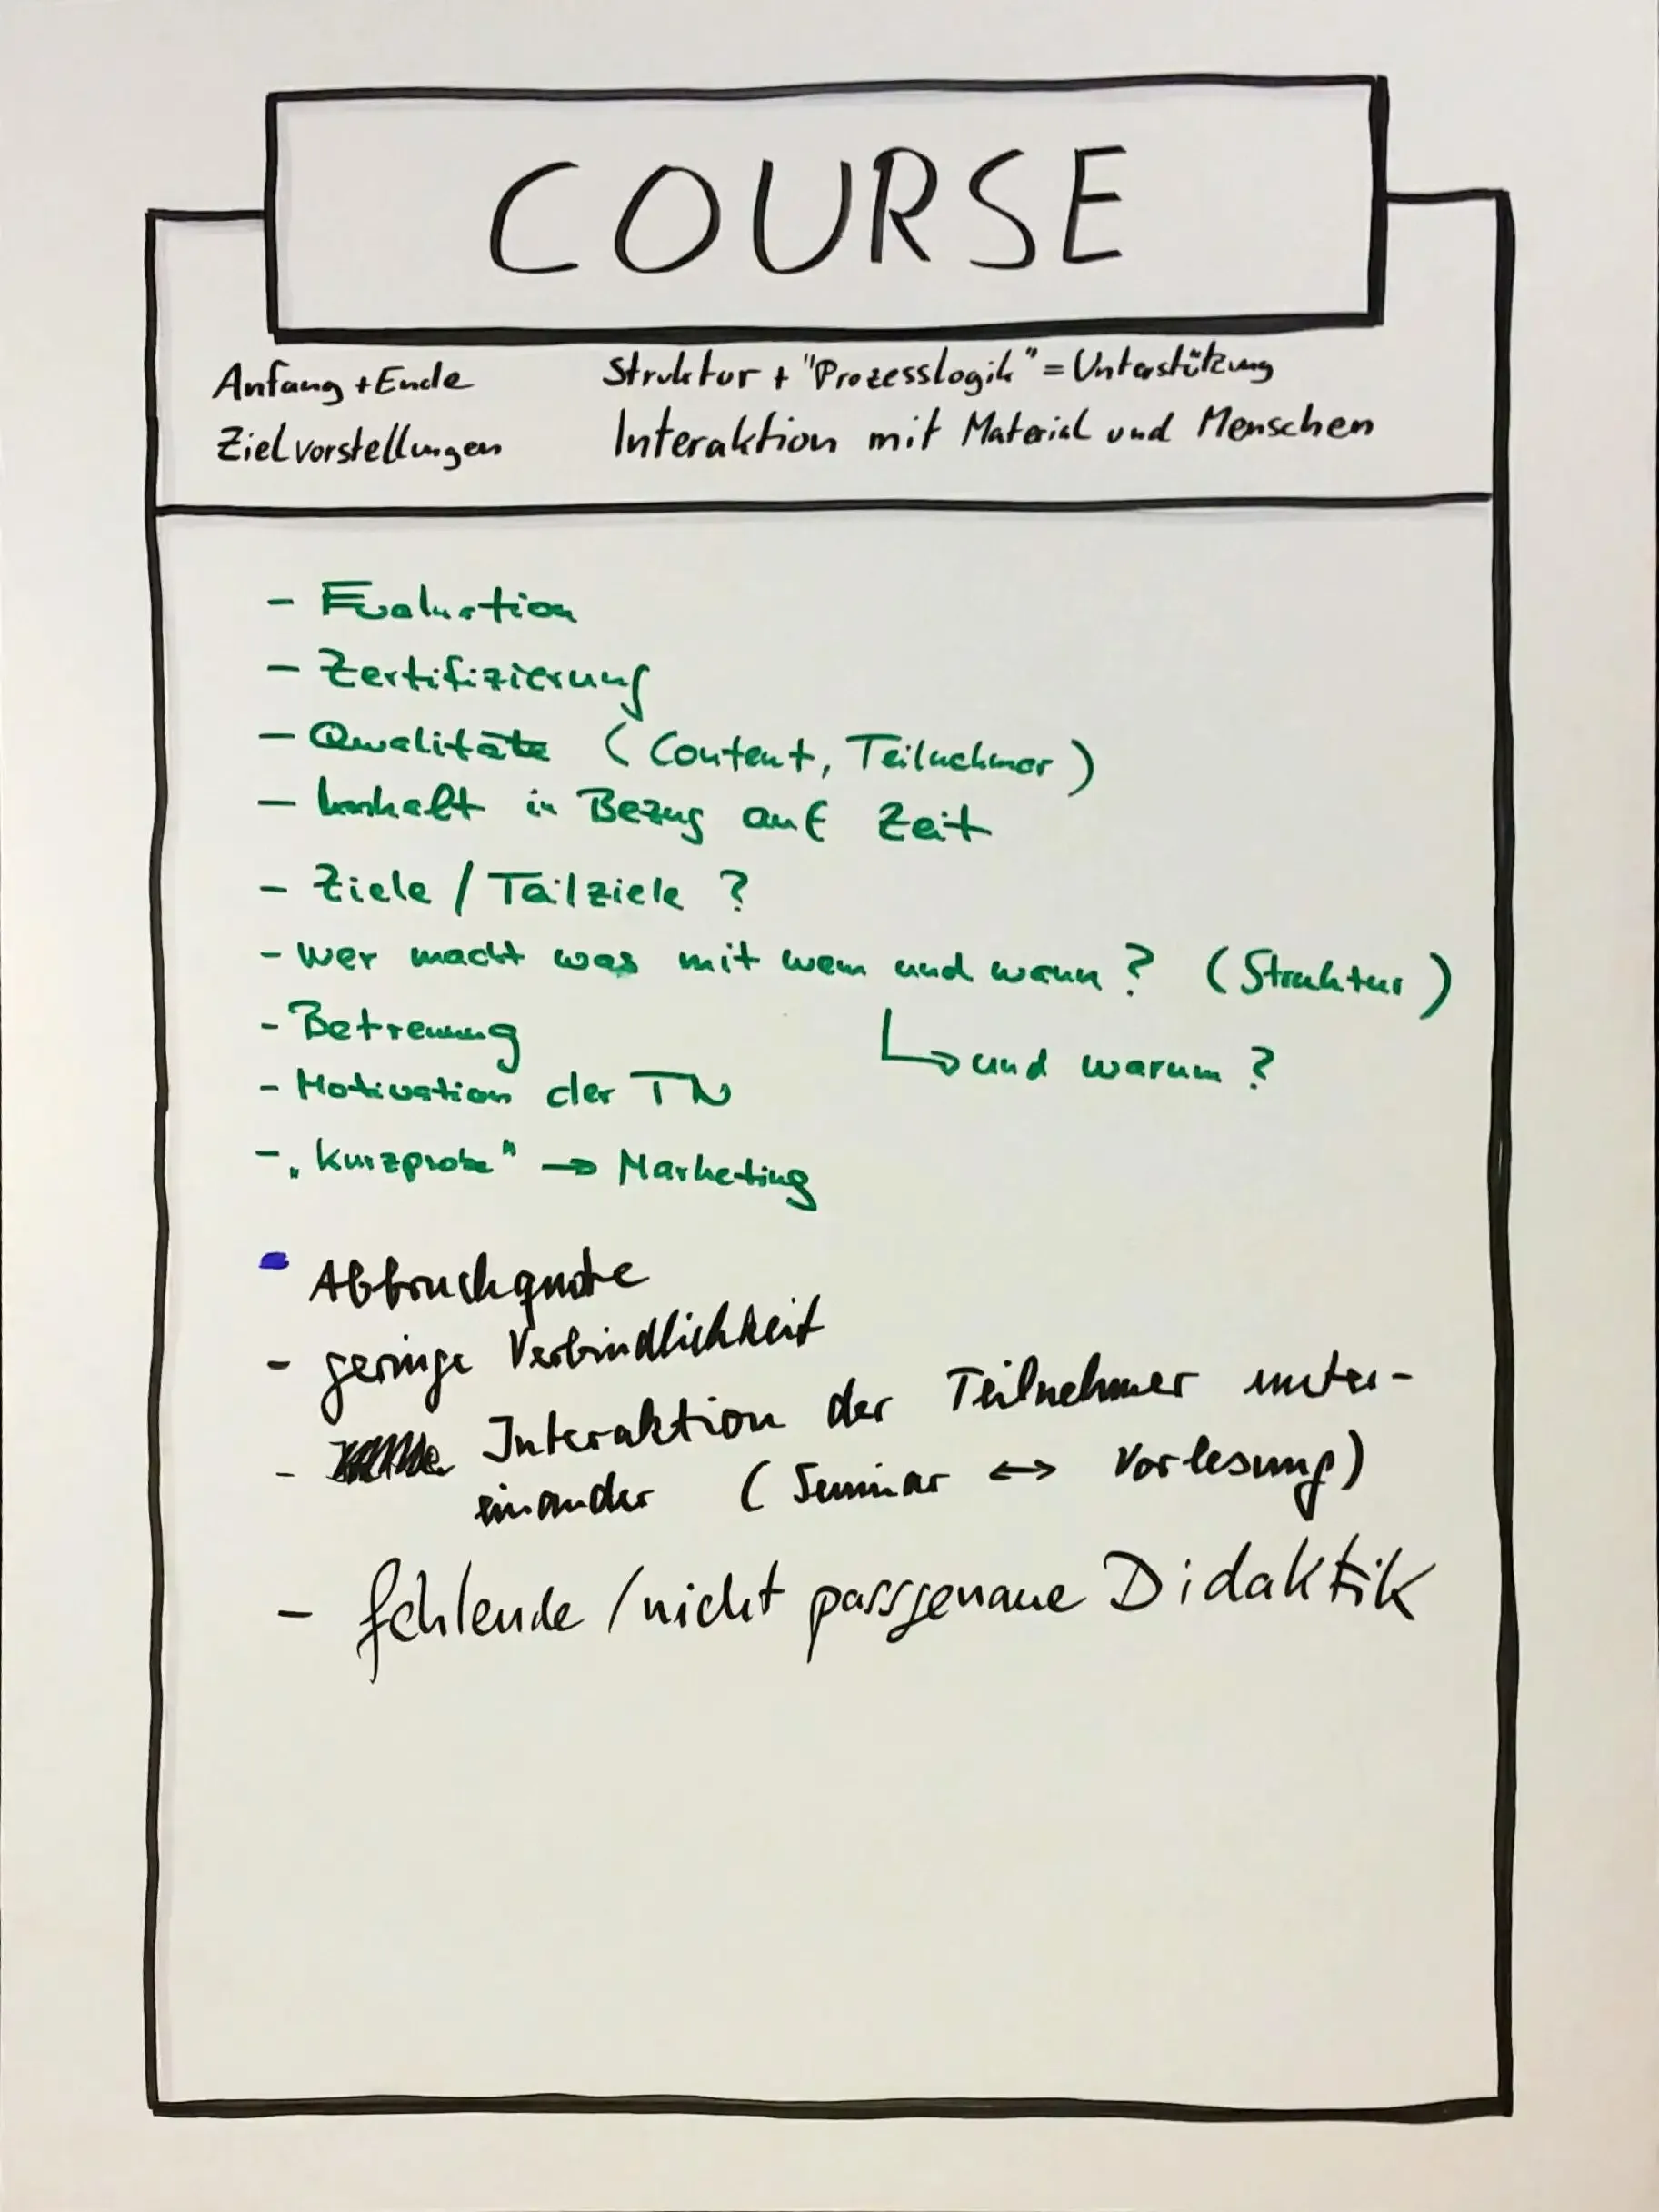 COURSE
Anfang + Ende
Zielvorstellungen
Struktur + "Prozesslogik" = Unterstützung
Interaktion mit Material und Menschen
- Evaluation
- Zertifizierung
- Qualität (Content, Teilnehmer)
- Inhalt in Bezug auf Zeit
- Ziele / Teilziele ?
- Wer macht was mit wem und wann ? (Struktur)
- Betreuung
↳ und warum ?
- Motivation der TN
- „Kurzprobe" → Marketing
- Abbruchquote
- geringe Verbindlichkeit
- Interaktion der Teilnehmer unter-
einander (Seminar ↔ Vorlesung)
- fehlende / nicht passgenaue Didaktik